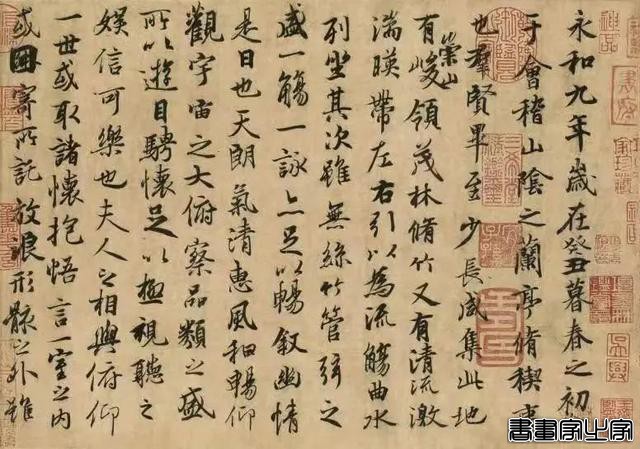 永和九年歲在癸丑暮春之初會
于會稽山陰之蘭亭脩稧事
也群賢畢至少長咸集此地
有崇山峻領茂林脩竹又有清流激
湍暎帶左右引以為流觴曲水
列坐其次雖無絲竹管弦之
盛一觴一詠亦足以暢叙幽情
是日也天朗氣清惠風和暢仰
觀宇宙之大俯察品類之盛
所以遊目騁懷足以極視聽之
娛信可樂也夫人之相與俯仰
一世或取諸懷抱悟言一室之內
或因寄所託放浪形骸之外雖
書畫家必字